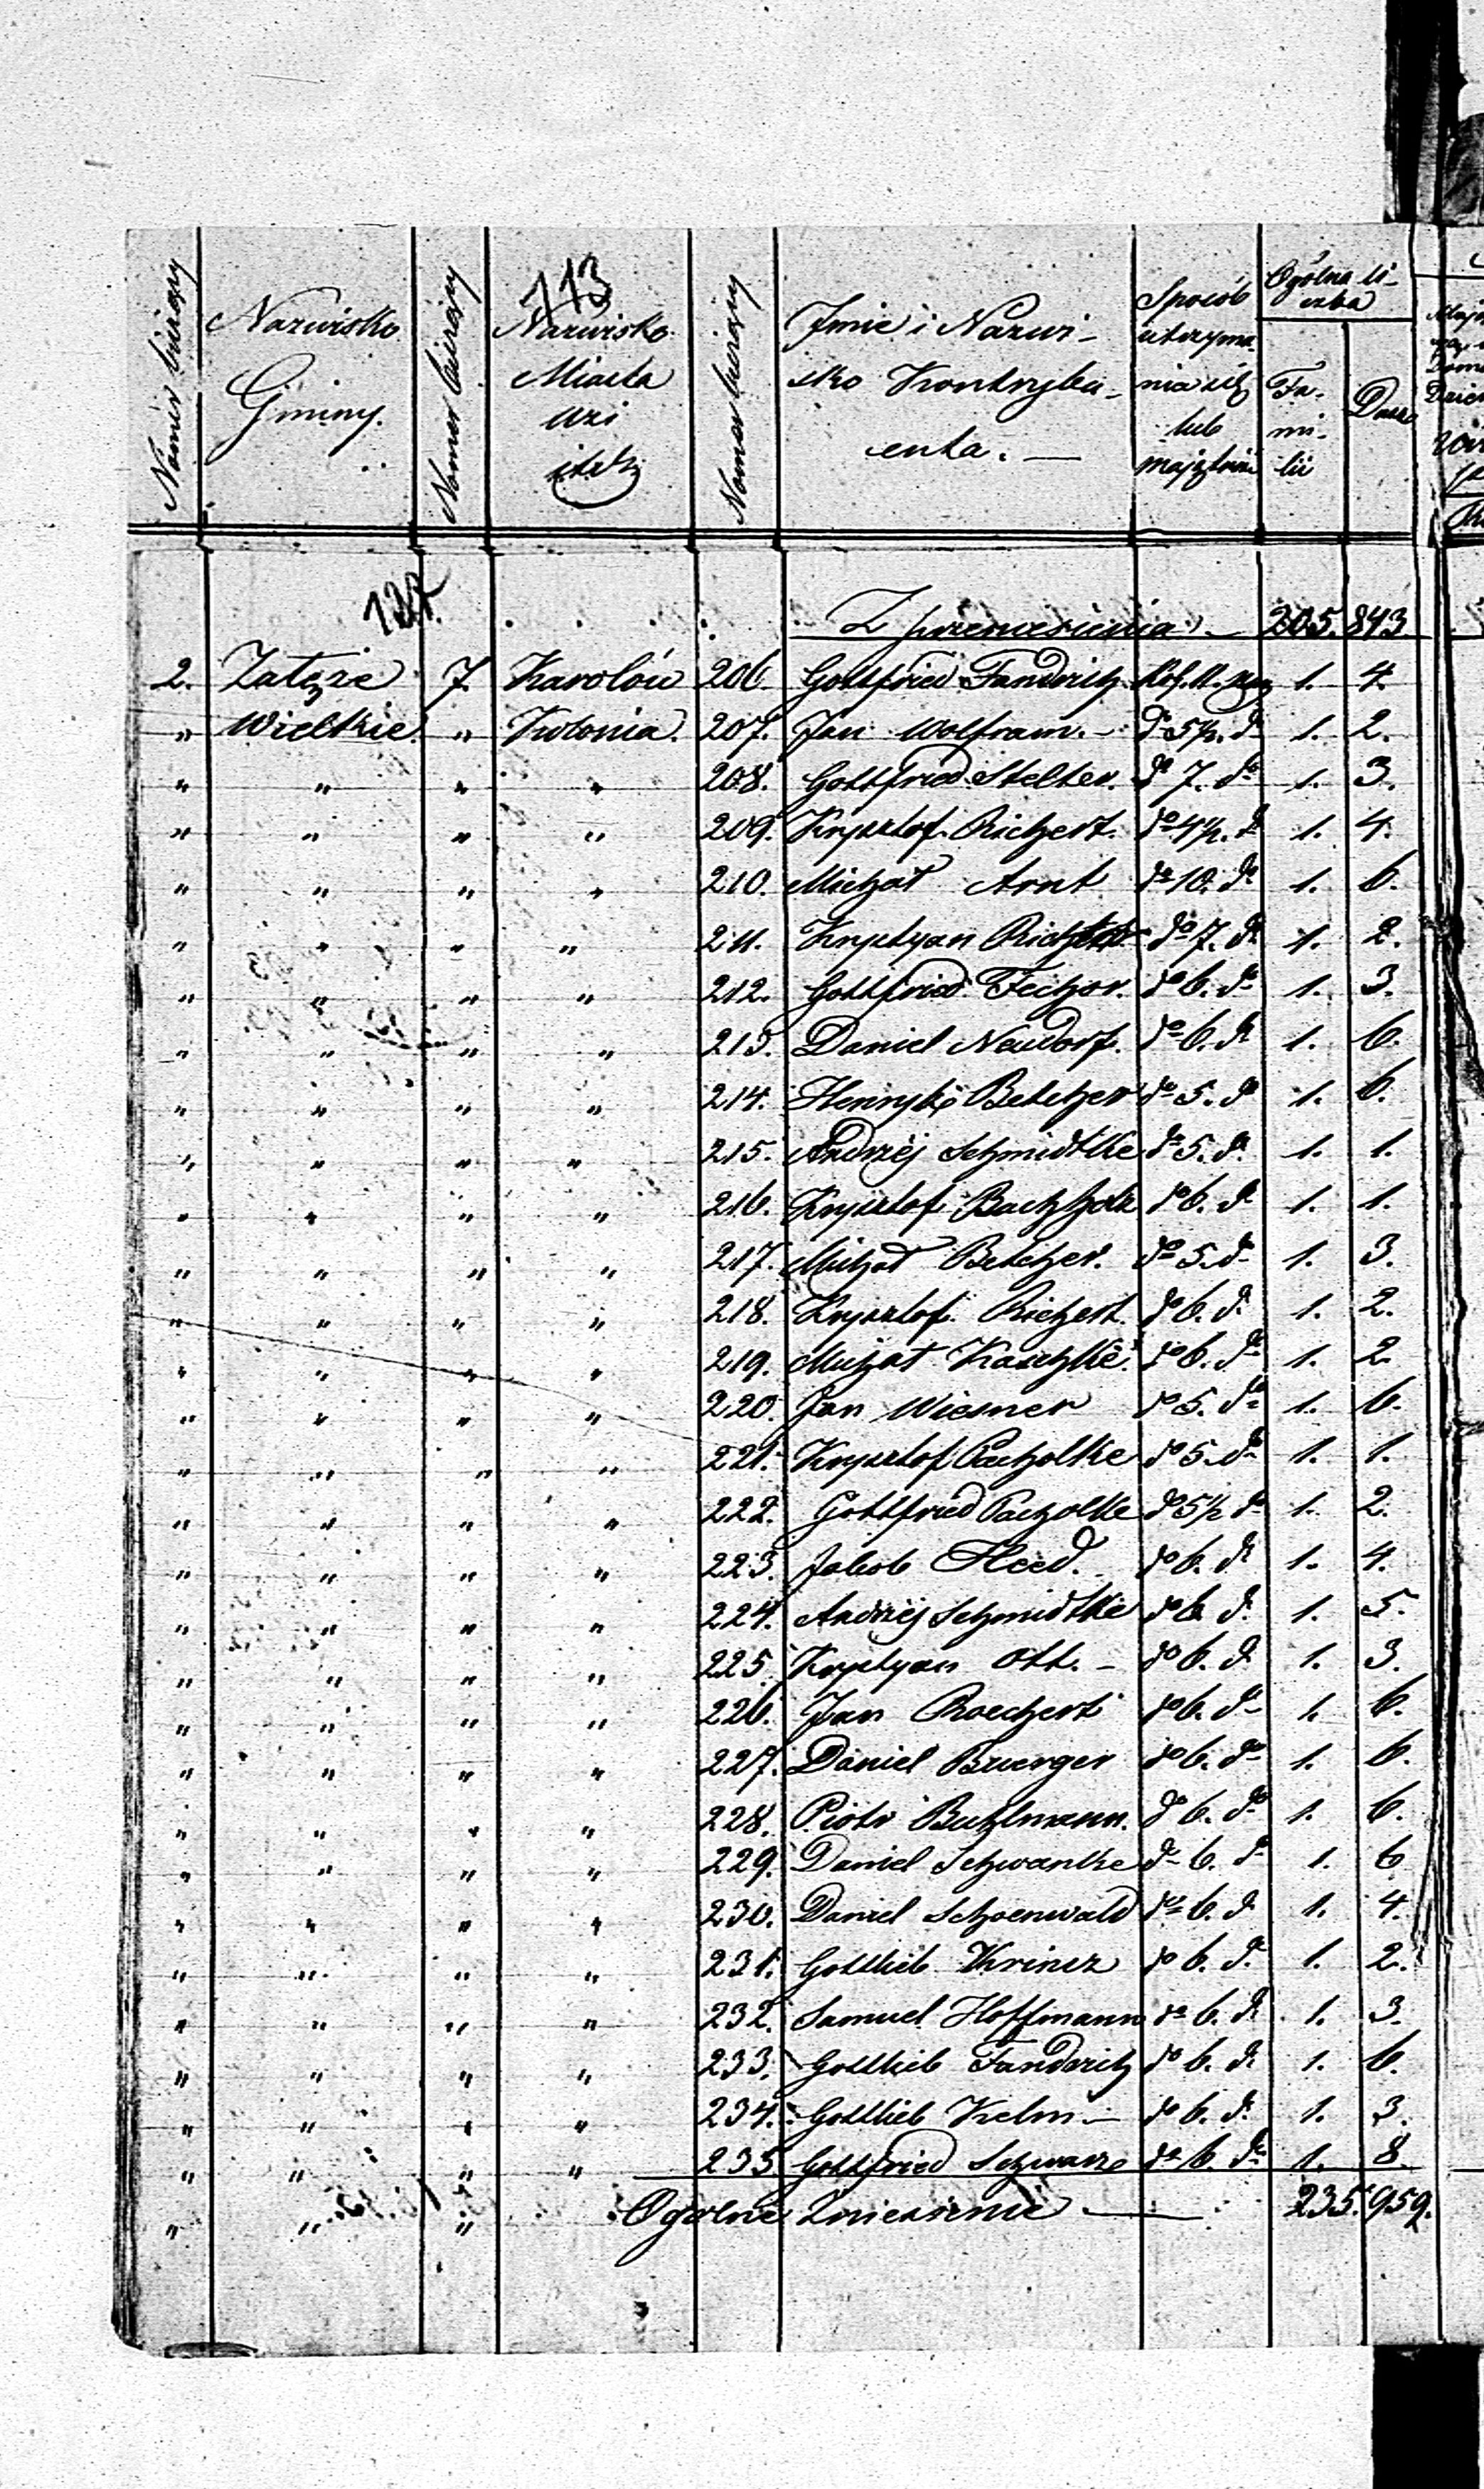 Numer bieżący
Nazwisko Gminy.
Numer bieżący
113
Nazwisko Miasta wsi itd.
Numer bieżący
Jmie i Nazwi- sko Kontrybu- enta. —
Sposób utrzyma- nia się lub majątków
Ogólna li- czba
Fa- mi- lii
Dusz
Z przeniesienia — 205. 843
2. Załęże 7. Karolów 206. Gottfried Fandrich 1. 4.
" Wielkie " Kolonia. 207. Jan Wolfram. - do 5½. do 1. 2.
" " " " 208. Gottfried Stelter. do 7. do 1. 3.
" " " " 209. Krysztof Richert. do 4½. do 1. 4.
" " " " 210. Michał Arnt do 10. do 1. 6.
" " " " 211. Krystyan do 7. do 1. 2.
" " " " 212. Gottfried Fechor. do 6. do 1. 3.
" " " " 213. Daniel Neudorf. do 6. do 1. 6.
" " " " 214. Henryk Betcher do 5. do 1. 6.
" " " " 215. Andrzéj Schmidtke do 5. do 1. 1.
" " " " 216. Krysztof Buchholz do 6. do 1. 1.
" " " " 217. Michał Betcher. do 5. do 1. 3.
" " " " 218. Krysztof Richert. do 6. do 1. 2.
" " " " 219. Michał Kaschke. do 6. do 1. 2.
" " " " 220. Jan Wiesner do 5. do 1. 6.
" " " " 221. Krysztof Pacholke do 5. do 1. 1.
" " " " 222. Gottfried Pacholke do 5½ do 1. 2.
" " " " 223. Jakob do 6. do 1. 4.
" " " " 224. Andrzéj Schmidtke do 6. do 1. 5.
" " " " 225. Krystyan Ott. - do 6. do 1. 3.
" " " " 226. Jan Roechert do 6. do 1. 6.
" " " " 227. Daniel Bwerger do 6. do 1. 6.
" " " " 228. Piotr Buhlmann. do 6. do 1. 6.
" " " " 229. Daniel Schwantke do 6. do 1. 6
" " " " 230. Daniel Schoenwald do 6. do 1. 4.
" " " " 231. Gottlieb Krinez do 6. do 1. 2.
" " " " 232. Samuel Hoffmann do 6. do 1. 3.
" " " " 233. Gottlieb Fandrich do 6. do 1. 6.
" " " " 234. Gottlieb Kelm — do 6. do 1. 3.
" " " " 235. Gottfried Schwarz do 6. do 1. 8.
" " " Ogolne Zniesienie — 235. 959.